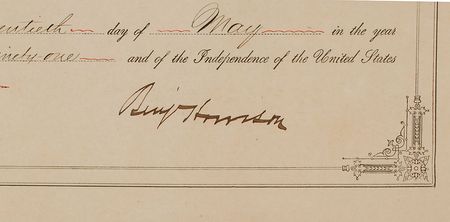 ntieth day of May in the year
ninety one and of the Independence of the United States
Benj Harrison